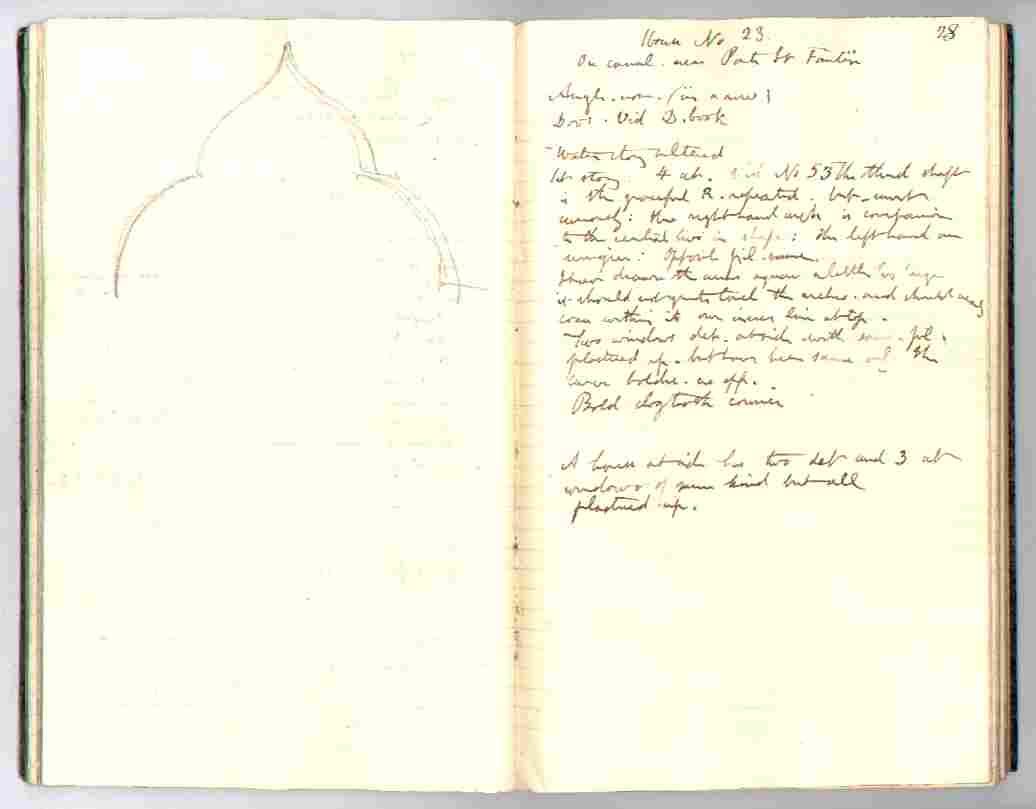 28
House No 23.
On canal. near Ponte St Fantin
Angle. (in
Door. Vid D. book
Water story altered
1st story. 4 att. Vid No 53 the third shaft
is the graceful R. repeated. but most
curiously: the right hand angle is companion
to the central two in shape: the left hand one
unique: Opposite pil. same.
I have drawn the a little too large
it should not quite touch the arches. and should
come within its own inner line at top.
Two windows det. at side with same pil.
plastered up. but have been same The
lower bolder as opp.
Bold dogtooth cornice
A house at side has two det and 3 att
windows of same kind but all
plastered up.